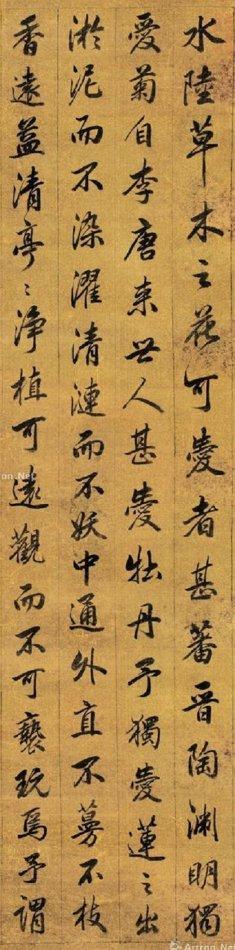 水陸草木之花可愛者甚蕃晋陶渊明獨
愛菊自李唐来世人甚愛牡丹予獨愛蓮之出
淤泥而不染濯清漣而不妖中通外直不蔓不枝
香遠益清亭〻净植可遠觀而不可褻玩焉予謂
Artron.Net